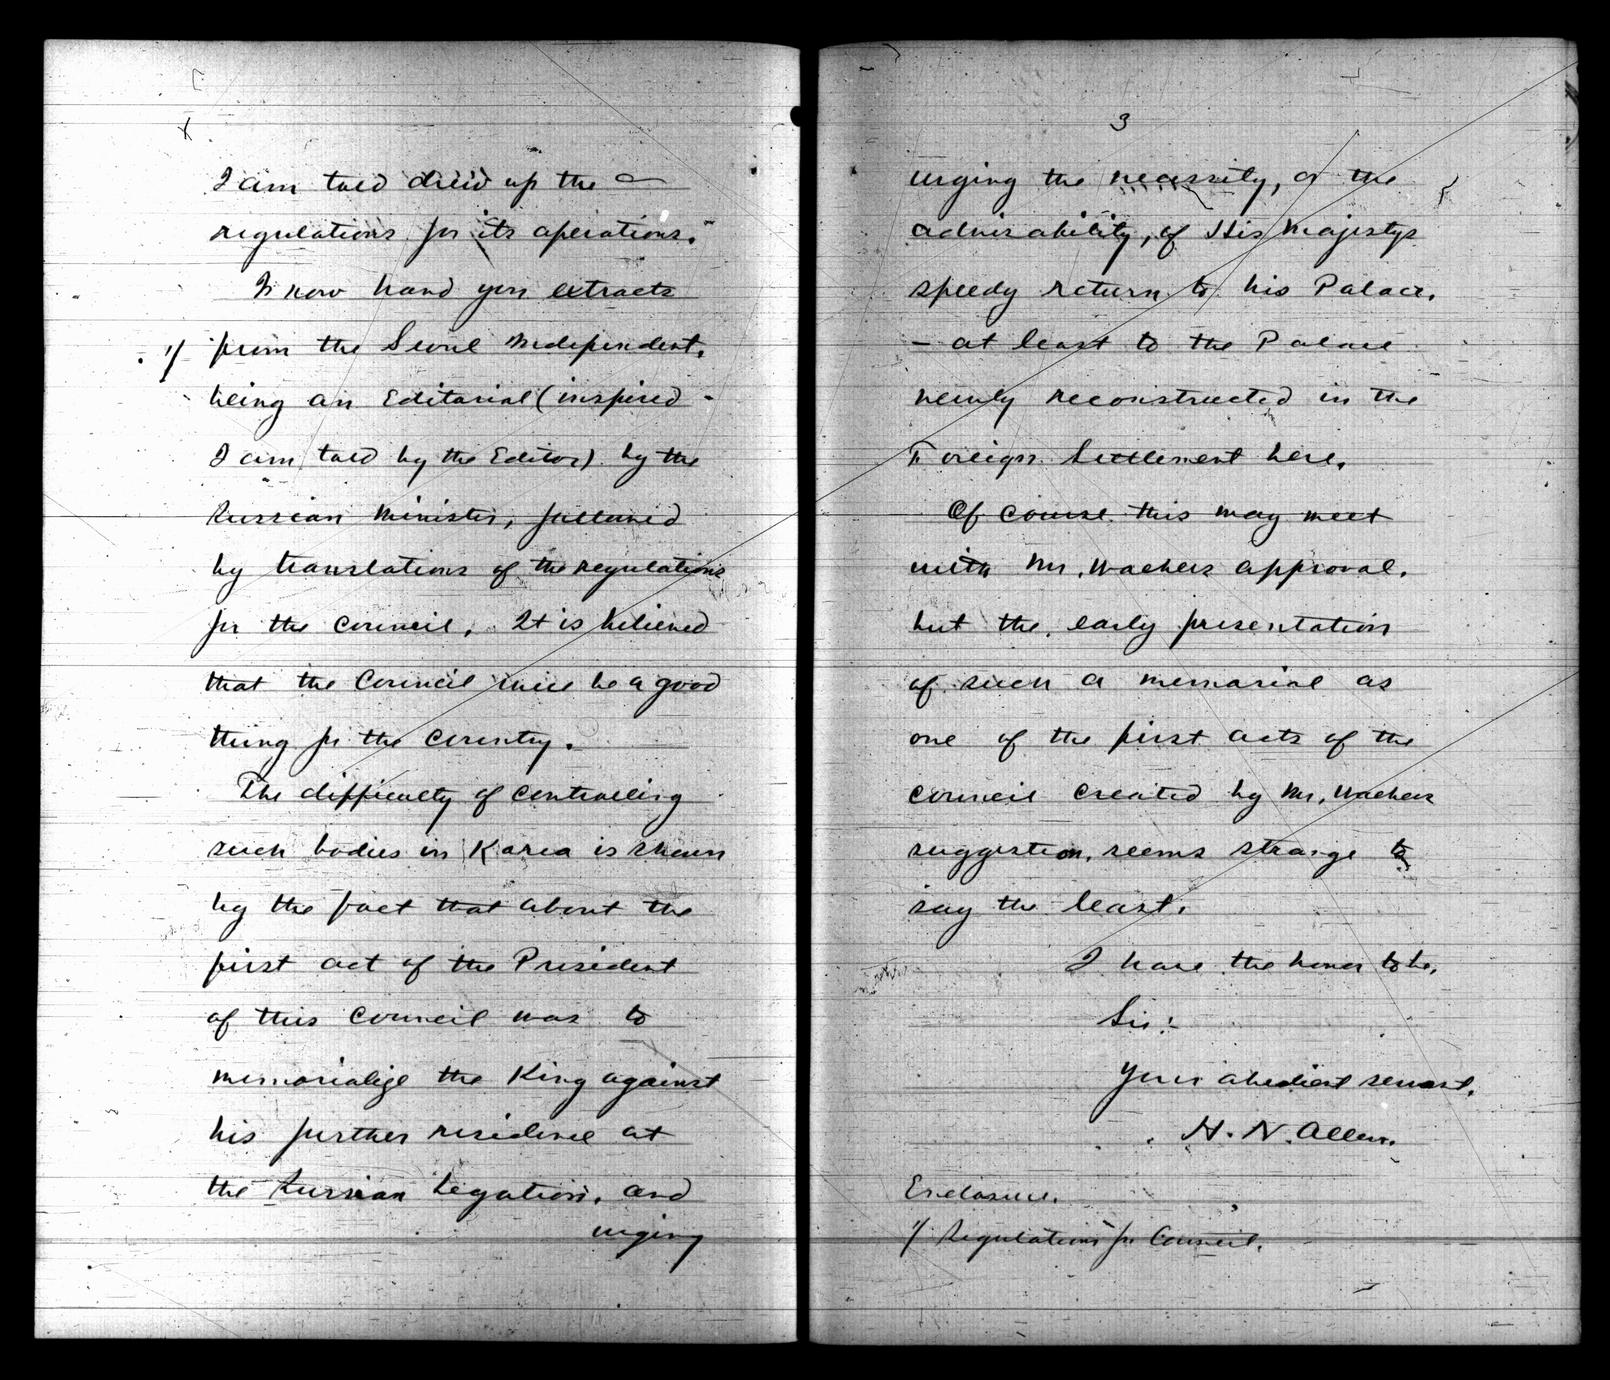 I am told drew up the
regulations for its operations.
I now hand you extracts
1/ from the Seoul Independent,
being an Editorial (inspired -
I am told by the Editor) by the
Russian Minister, followed
by translations of the regulations
for the Council. It is believed
that the Council will be a good
thing for the Country.
The difficulty of controlling
such bodies in Korea is shown
by the fact that about the
first act of the President
of this Council was to
memorialize the King against
his further residence at
the Russian Legation, and
urging
3
urging the necessity, or the
advisability, of His Majestys
speedy return to his Palace,
- at least to the Palace
newly reconstructed in the
Foreign Settlement here.
Of course this may meet
with Mr. Waebers approval,
but the early presentation
of such a memorial as
one of the first acts of the
Council created by Mr. Waebers
suggestion, seems strange to
say the least.
I have the honor to be,
Sir:-
Your obedient servant,
H. N. Allen.
Enclosure.
1/ Regulations for Council.